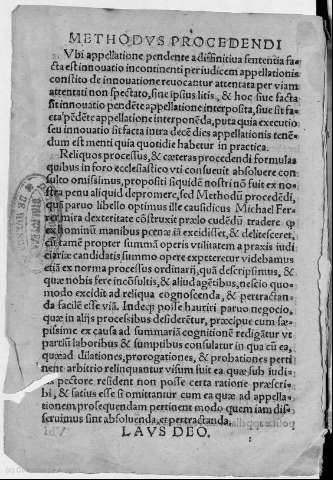 METHODVS PROCEDENDI
Vbi appellatione pendente a diffinitiua sententia fa-
cta est innouatio incontinenti per iudicem appellationis
constito de innouatione reuocantur attentata per viam
attentati non spectato, fine ipsius litis, & hoc siue facta
sit innouatio pendēte appellatione interposita, siue sit fa-
cta pēdēte appellatione interponēda, puta quia executio
seu innouatio sit facta intra decē dies appellationis tenē-
dum est menti quia quotidie habetur in practica.
Reliquos processus, & cæteras procedendi formulas
quibus in foro ecclesiastico vti consueuit absoluere con-
sulto omisimus, propositi siquidē nostri nō fuit ex no-
stra penu aliquid depromere, sed Methodū procedēdi,
quā paruo libello optimus ille causidicus Michael Fer-
rer mira dexteritate cōstruxit prælo cudēdū tradere
ex hominū manibus penæ iā excidisset, & delitesceret,
cū tamē propter summā operis vtilitatem a praxis iudi
ciariæ candidatis summo opere expeteretur videbamus
etiā ex norma processus ordinarij, quā descripsimus, &
quæ nobis fere incōsultis, & aliud agētibus, nescio quo-
modo excidit ad reliqua cognoscenda, & pertractanda
facilē esse viā. Indeq; posse hauriri paruo negocio,
quæ in alijs processibus desiderētur, præcipue cum sæ-
pissime ex causa ad summariā cognitionē redigātur vt
partiū laboribus & sumptibus consulatur in qua cū ea,
quæ ad dilationes, prorogationes, & probationes perti
nent arbitrio relinquantur visum fuit ea quæ sub iudi-
pectore resident non posse certa ratione præscri-
bi, & satius esse si omittantur cum ea quæ ad appella-
tionem prosequendam pertinent modo quem iam dis-
seruimus sint absoluenda, et pertractanda.
LAVS DEO.